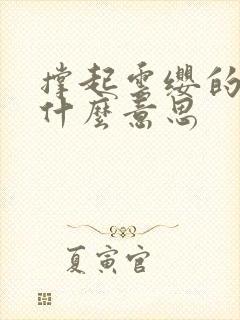 撑起雲纓的
什麼意思
夏寅官